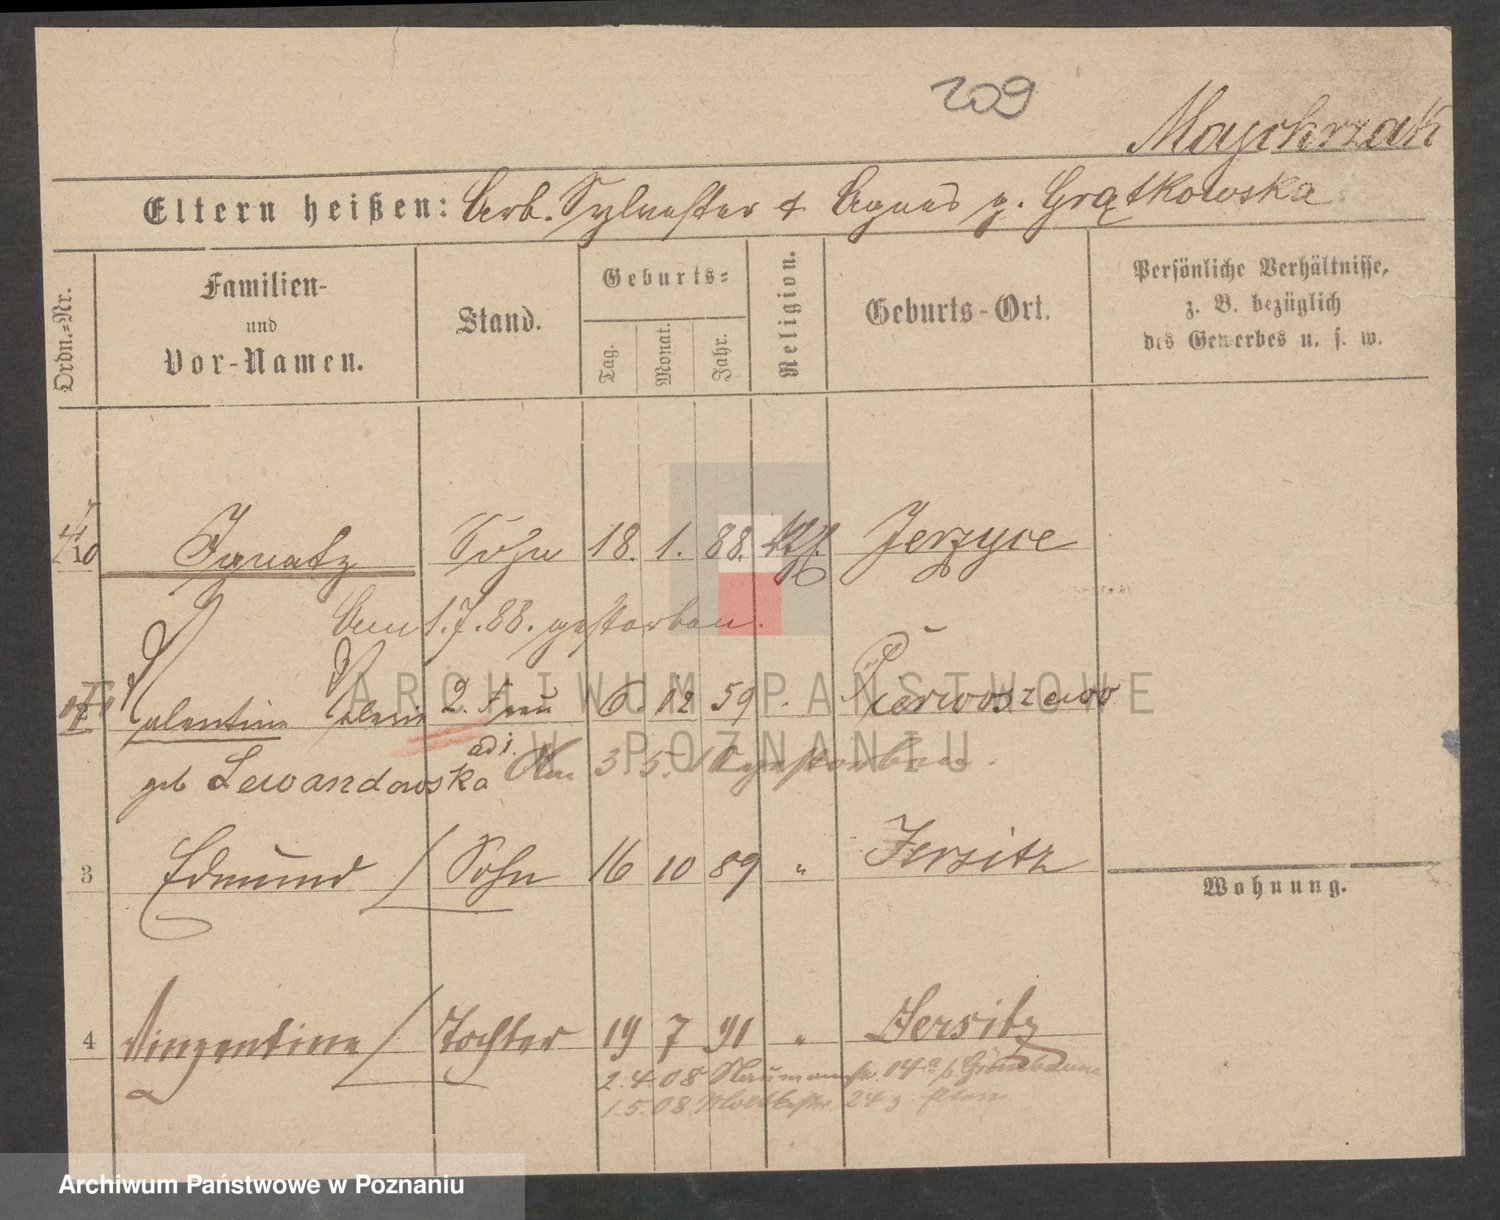 209
Majchrzak
Eltern heißen: Arb. Sylvester & Agnes g. Grątkowska
Ordn.=Nr.
Familien-
und
Vor-Namen.
Stand.
Geburts=
Tag.
Monat.
Jahr.
Religion.
Geburts-Ort.
Persönliche Verhältnisse,
z. B. bezüglich
des Gewerbes u. s. w.
10 Ignatz Sohn 18. 1. 88. kth. Jerzyce
Am 1.7.88. gestorben.
Valentine 2. Frau 6. 12 59 Pierwoszewo
geb Lewandowska Am 3 5. 10 gestorben.
3 Edmund / Sohn 16 10 89 " Jersitz
Wohnung.
4 Vinzentine / Tochter 19 7 91 " Jersitz
2.4.08 Naumannstr. 04a b/ Grünbaum
1.5.08 24
ARCHIWUM PAŃSTWOWE
W POZNANIU
Archiwum Państwowe w Poznaniu